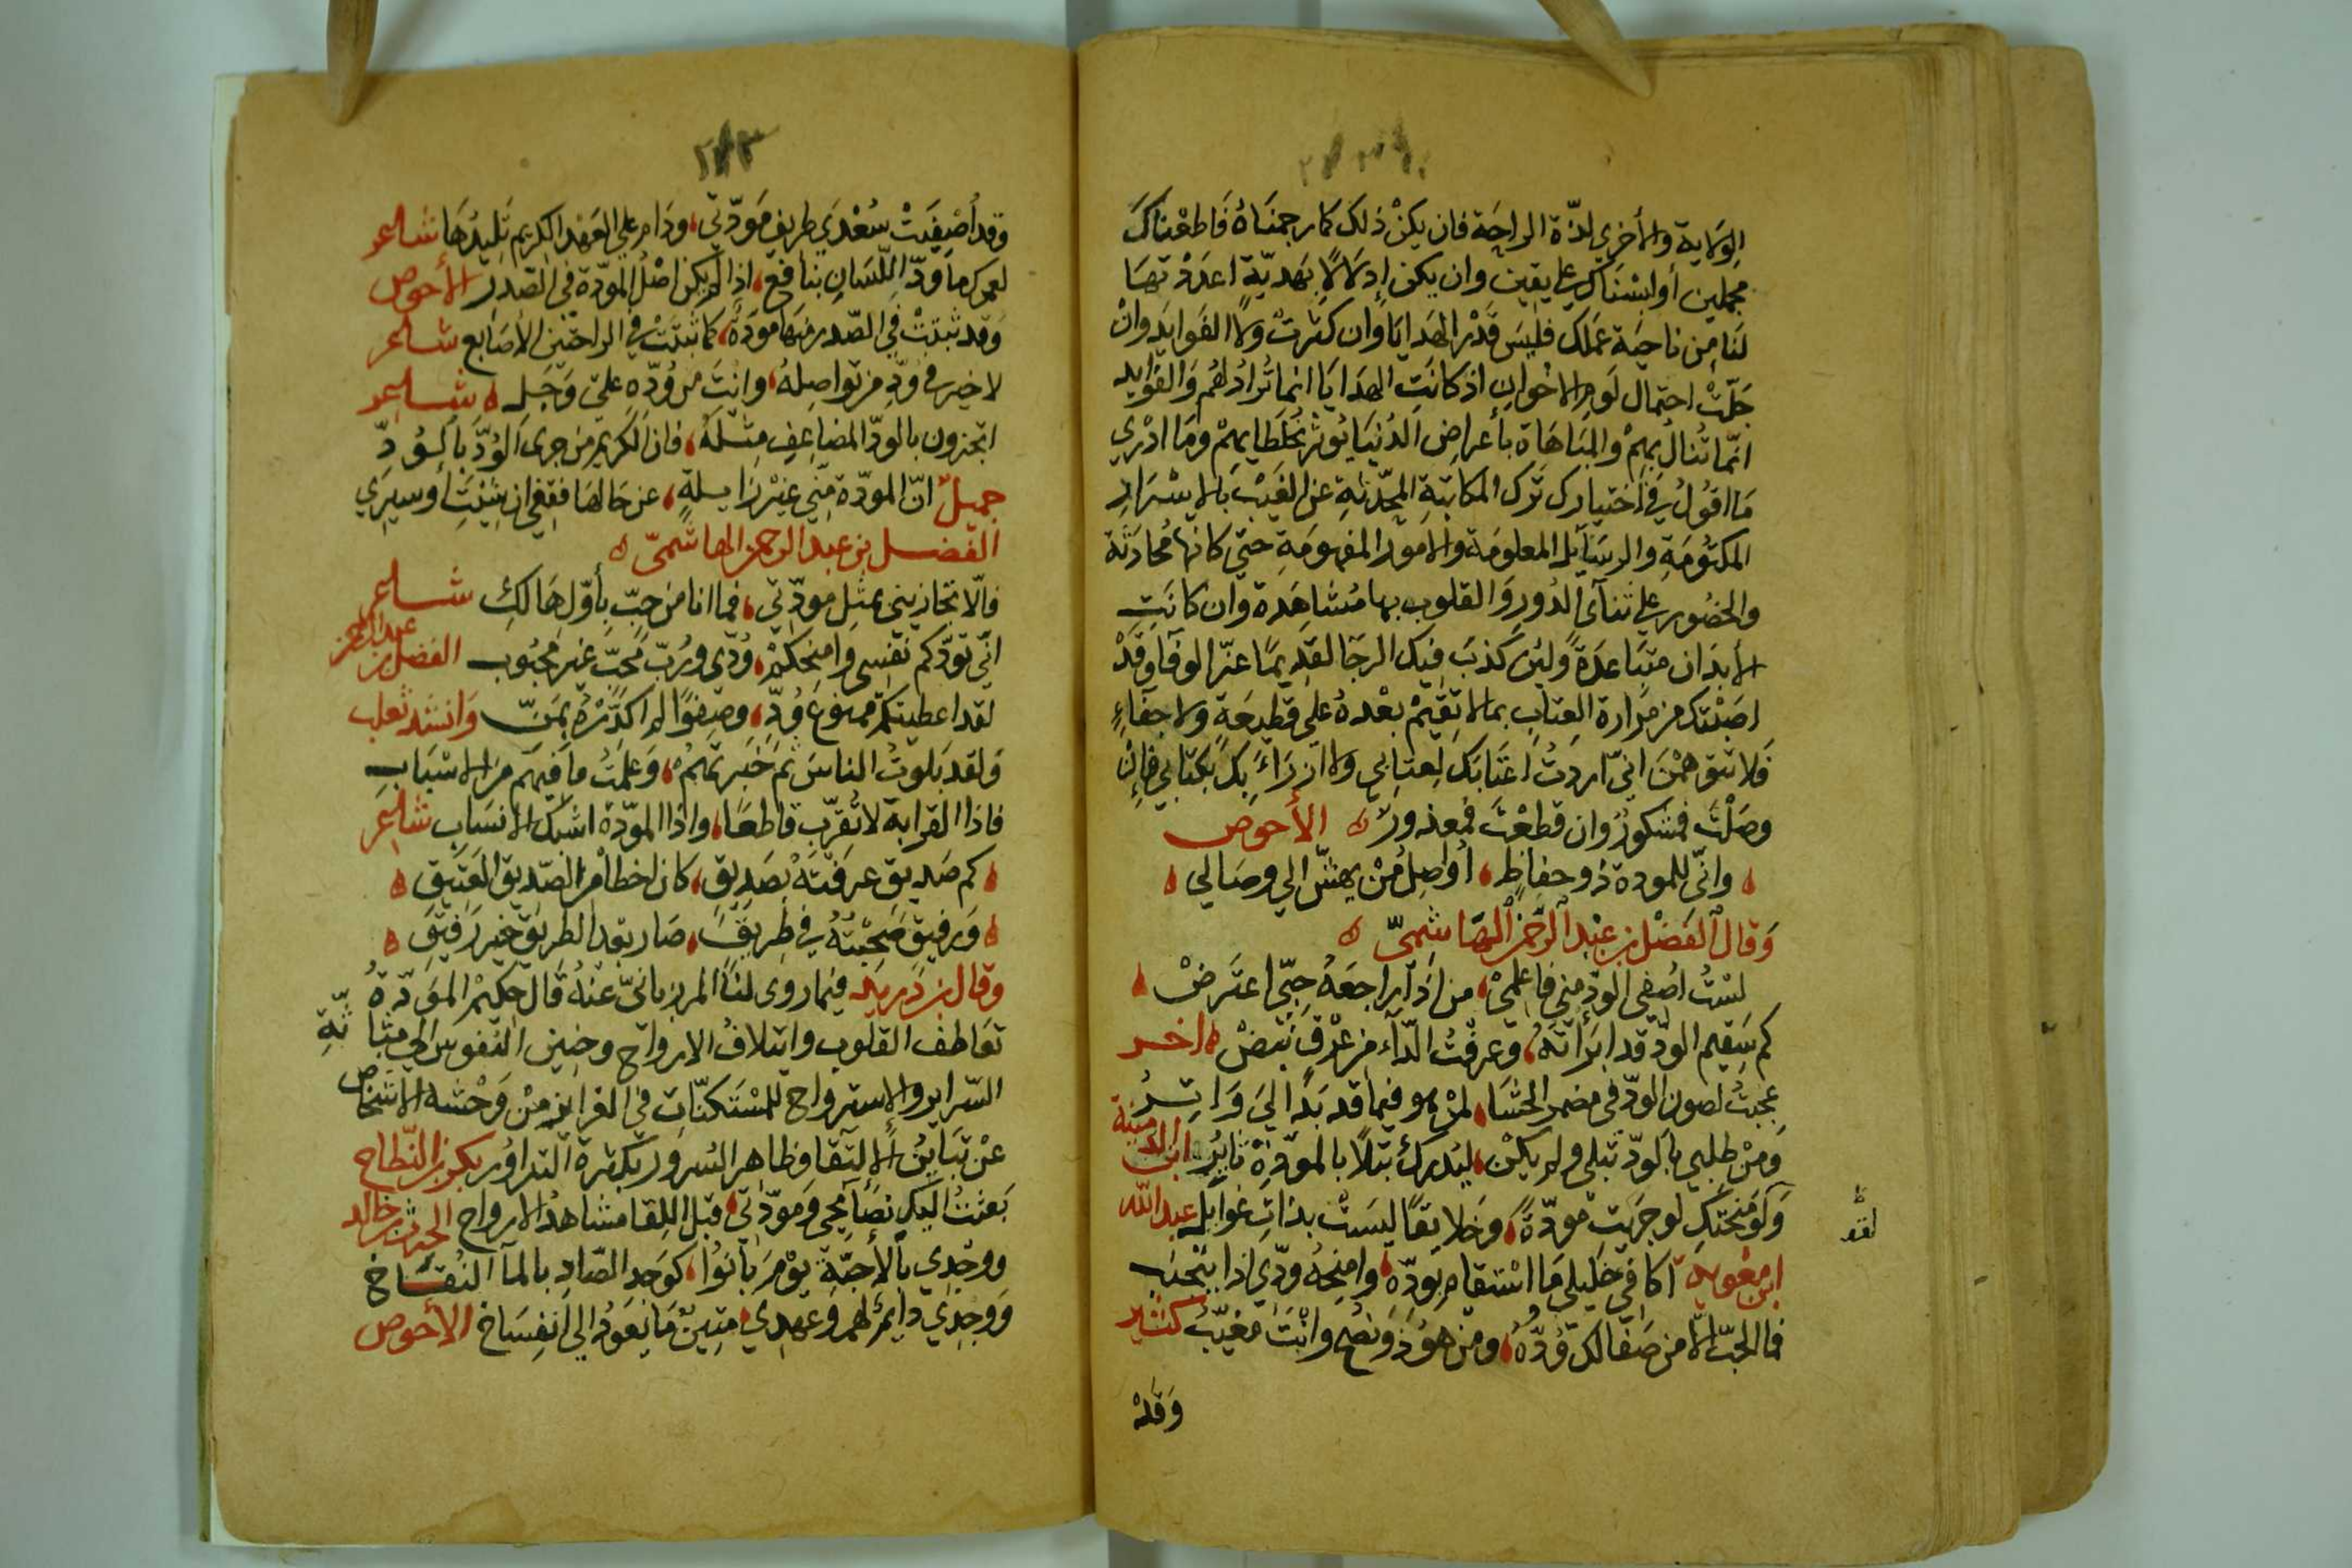 الولاية والأخرى لذة الراحة فان يكن ذلك كما رجمناه فاطعناك
مجملين أو ابسناك على يقين وان يكن إدلالا بهدية اعددتها
لنا من ناحية عملك فليس قدر الهدايا وان كثرت ولا الفوايد وان
جلت احتمال لوم الاخوان اذ كانت الهدايا انما تراد لهم والفوايد
انما تنال بهم والمباهاة بأعراض الدنيا يوثر خلطايهم وما ادري
ما اقول في اختيارك ترك المكاتبة المحدثة عن الغيب بالاسرار
المكتومة والرسايل المعلومة والامور المفهومة حتى كانها محادثة
والحضور على تنآى الدور والقلوب بها مشاهدة وان كانت
الابدان متباعدة ولين كذب فيك الرجا لقديما عز الوفا وقد
اصبتك من مرارة العتاب بما لا تقيم بعده على قطيعة ولا جفاء
فلا تتوهمن اني اردت اعتابك لعتابي ولا ازراء بك بكتابي فان
وصلت فمشكور وان قطعت فمعذور ه الأحوص
واني للمودة ذو حفاظ، أواصل من يهش الى وصالي
وقال الفضل بن عبد الرحمن الهاشمي ه
لست اصفي الود مني فاعلمي، من اذا يراجعه حبي اعترض
كم سقيم الود قد ابرأته، وعرفت الداء من عرق نبض ه اخر
عجبت لصون الود في مضمر الحشا، لمن هو فيما قد بدا لي واتر
ومن طلبي بالود تبلي ولم يكن، ليدرك تبلا بالمودة ثاير ابن الدمينة
ولو منحتك لو جريت مودة، وخلايقا ليست بذات غوايل عبد الله
ابن معوية أكافي خليلي ما استقام بوده، وامنحه ودي اذا يتجنب
فما الحب الا من صفا لك وده، ومن هو ذو نصح وانت مغيب كثير
وقد
وقد أصفيت سعدى طريف مودتي، ودام على العهد الكريم تليدها شاعر
لعمرك ما ود اللسان بنافع، اذا لم يكن اصل المودة في الصدر الأحوص
وقد ثبتت في الصدر منها مودة، كما ثبتت في الراحتين الأصابع شاعر
لا خير في ود من تواصله، وانت من وده على وجل ه شاعر
اتجزون بالود المضاعف مثله، فان الكريم من جرى الود بالود
جميل ان المودة مني غير زايلة، عن حالها فقفي ان شيت أو سيري
الفضل بن عبد الرحمن الهاشمي ه
فالا تجازيني بمثل مودتي، فما انا من حب بأول هالك شاعر
اني تودكم نفسي وامنحكم، ودي ورب محب غير محبوب الفضل بن عبد الرحمن
لقد اعطيتكم ممنوع ود، وصفوا لم اكدره بمن وانشد ثعلب
ولقد بلوت الناس ثم خبرتهم، وعلمت ما فيهم من الاسباب
فاذا القرابة لا تقرب قاطعا، واذا المودة اشبك الانساب شاعر
كم صديق عرفته بصديق، كان احظا من الصديق العتيق ه
ورفيق صحبته في طريق، صار بعد الطريق خير رفيق ه
وقال بن دريد فيما روى لنا المرزباني عنه قال حكيم المودة
تعاطف القلوب وايتلاف الارواح وحنين النفوس الى مثاثة
السراير والاسترواح للمستكنات في الغرايز من وحشة الاشخاص
عن تباين الالتقا وظاهر السرور بكثرة التزاور بكر بن النطاح
بعثت اليك نصايحي ومودتي، قبل اللقا مشاهد الارواح الحرث بن خالد
ووجدي بالأحبة يوم بانوا، كوجد الصاد بالما النقاخ
ووجدي دايم لهم وعهدي، متين ما يعود الى انفساخ الأحوص